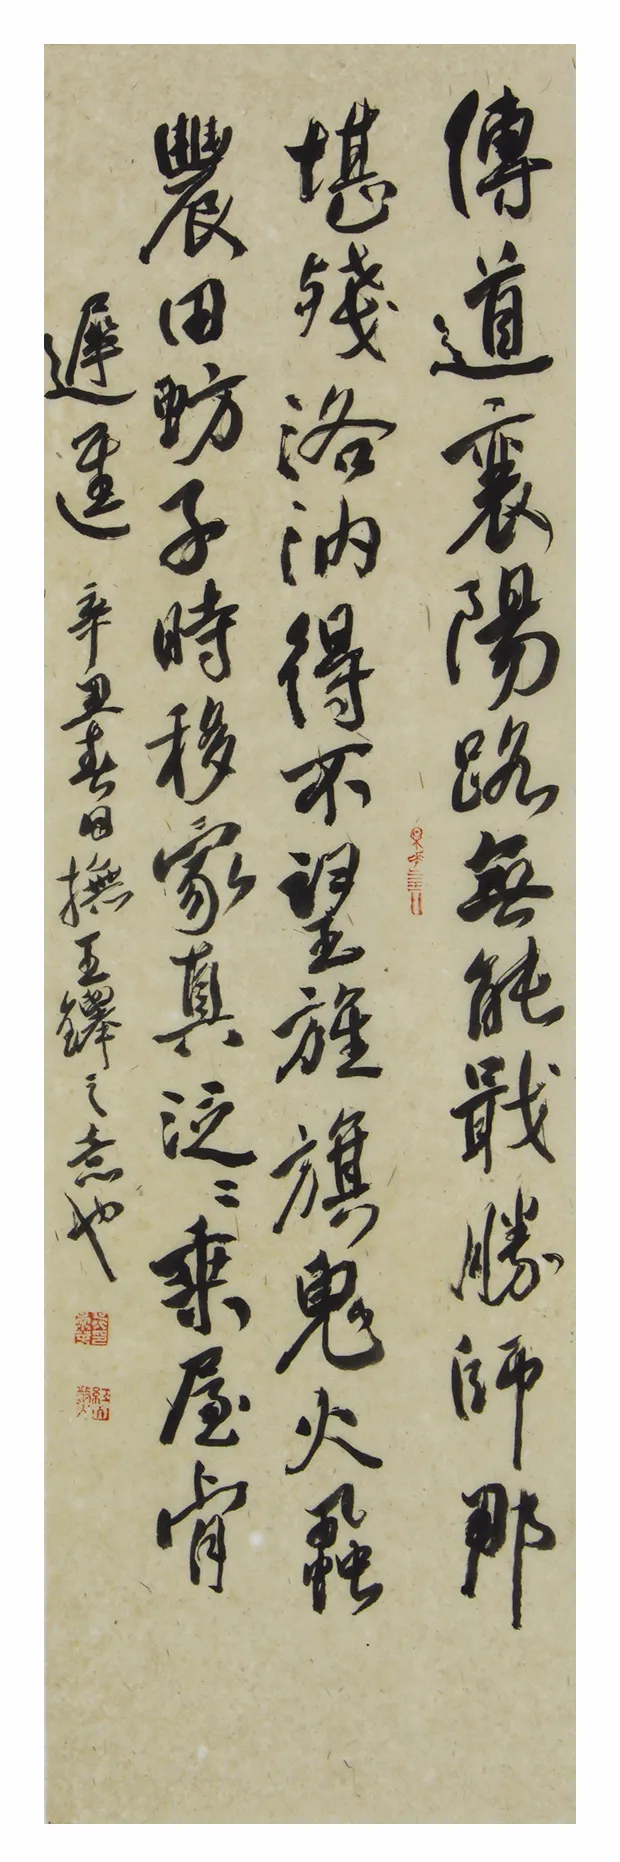 傳道襄陽路無能戰勝師那
堪殘洛汭得不望旌旗鬼火蝨
農田蚄子時移家真泛〻乘屋肯
遲遲
辛丑春日撫王鐸之意也